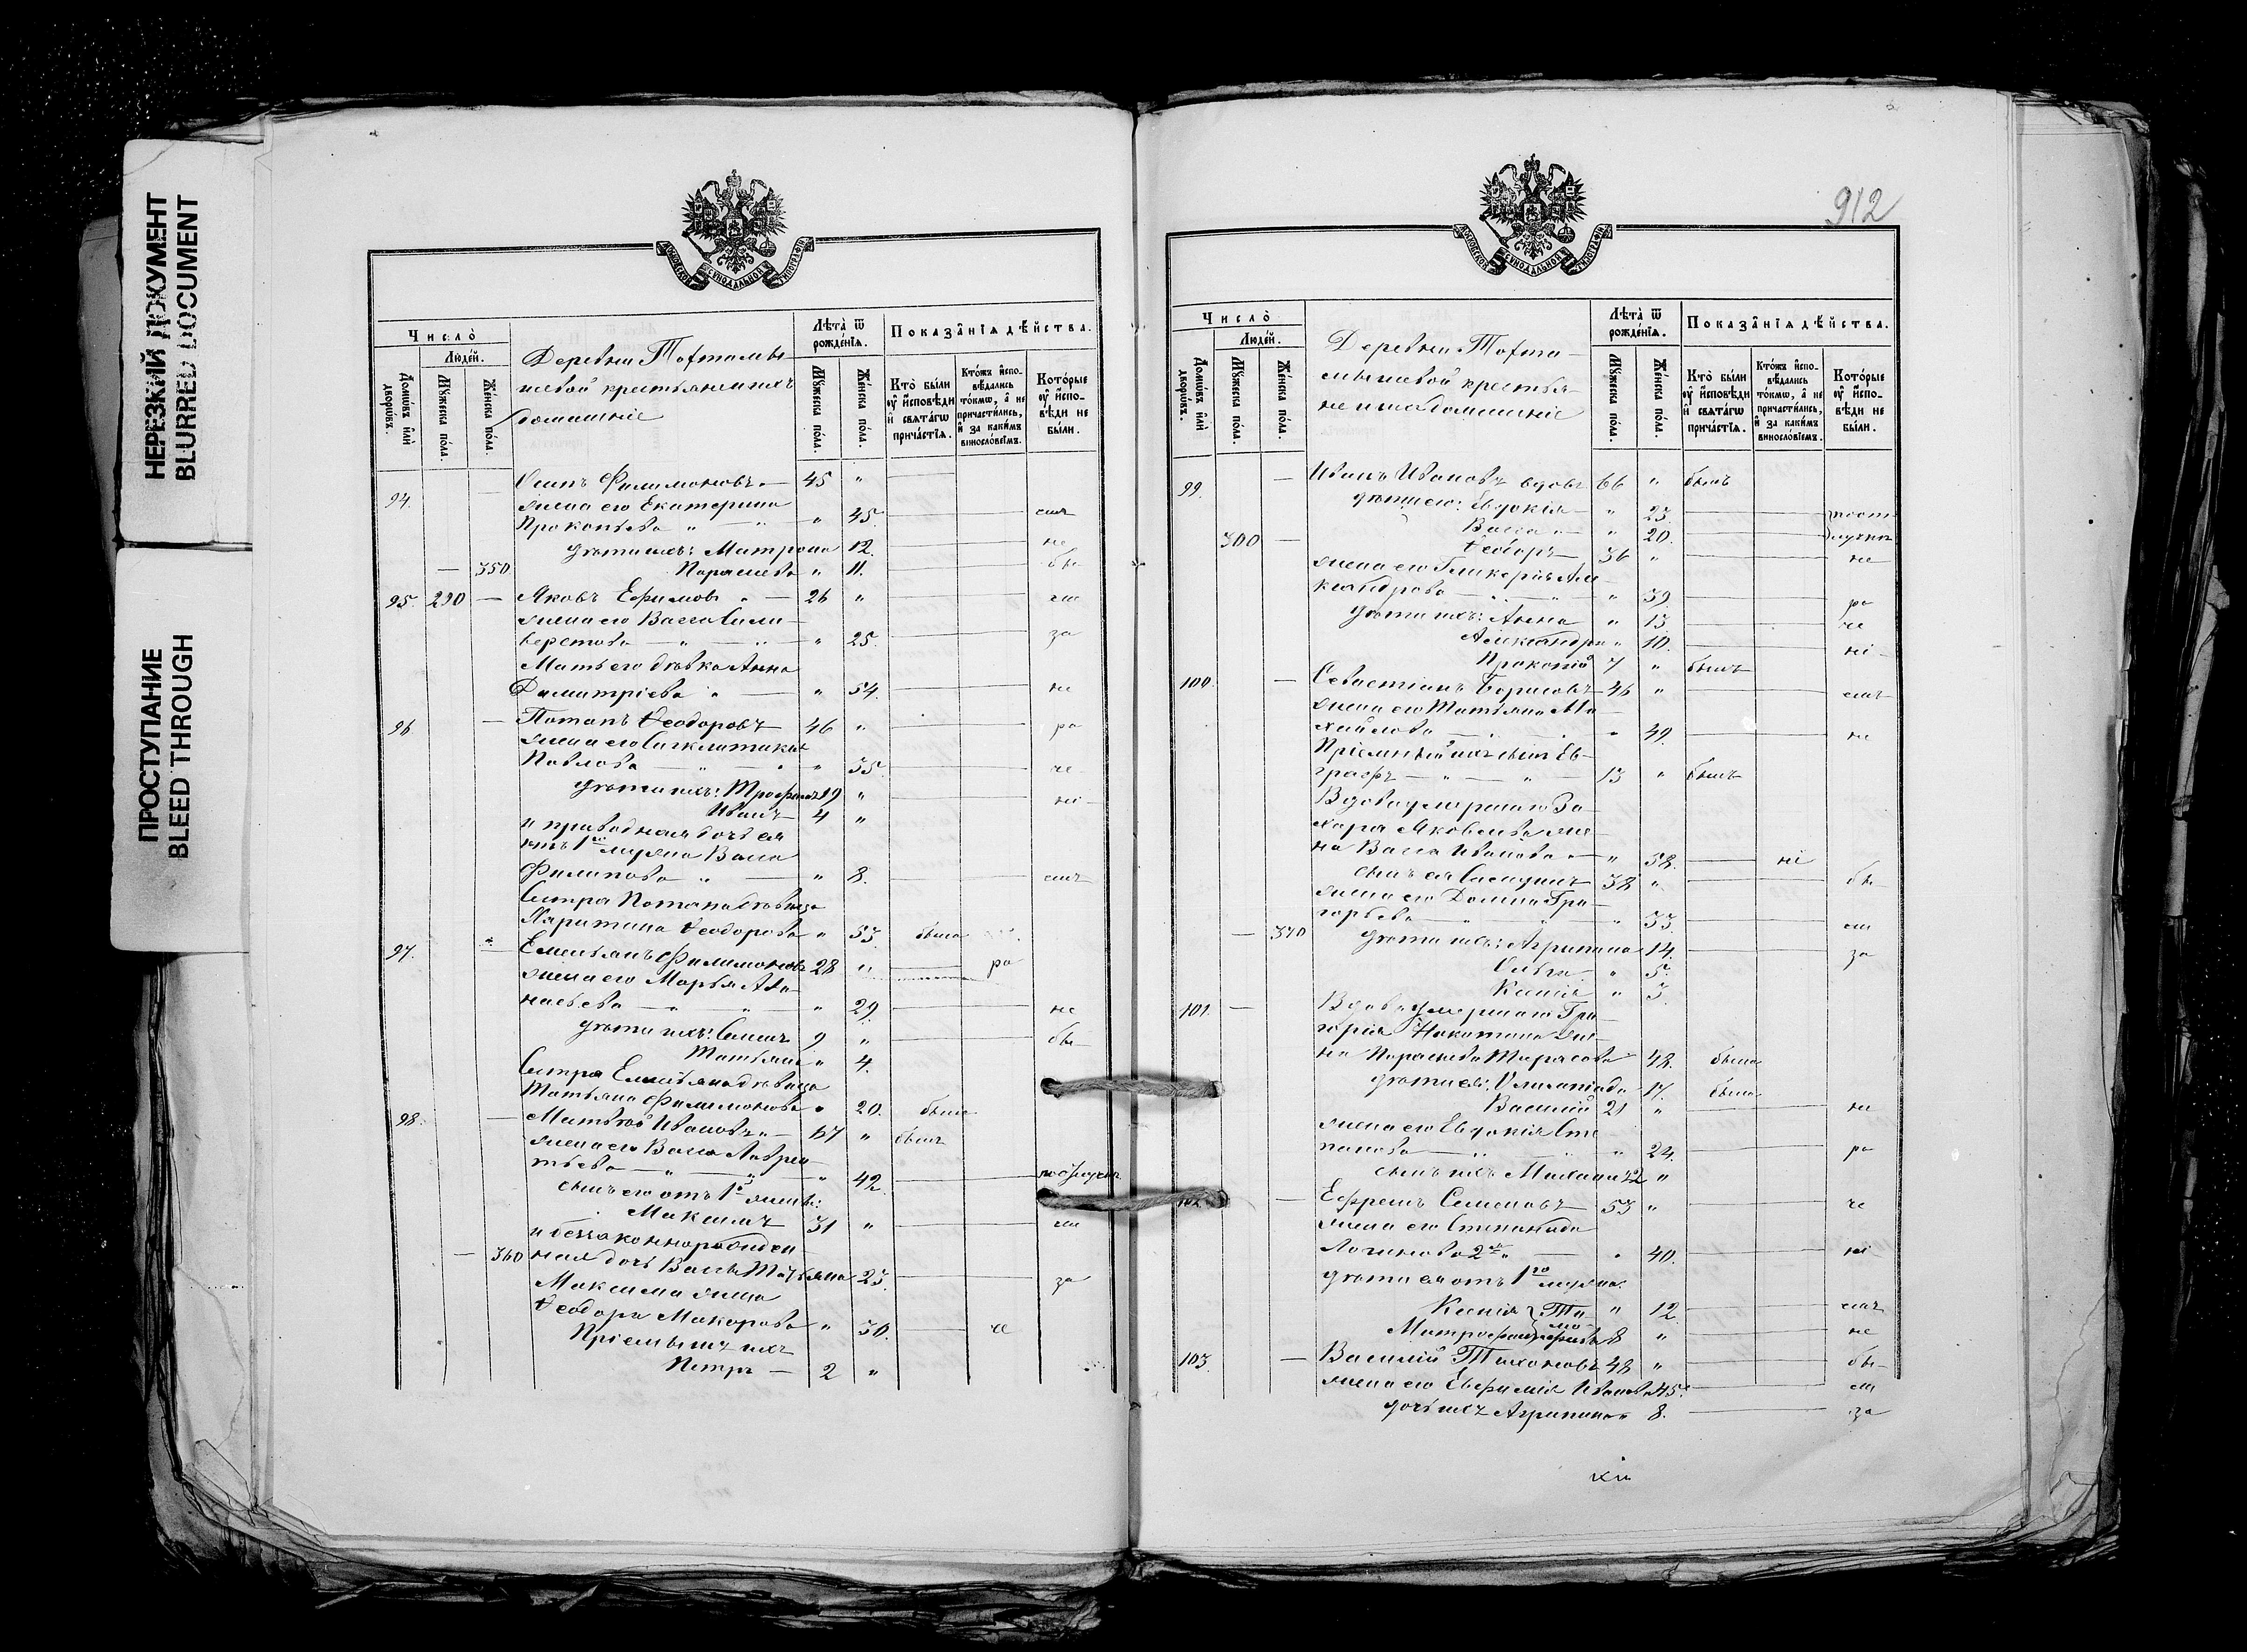 НЕРЕЗКИЙ ДОКУМЕНТ
BLURRED DOCUMENT
ПРОСТУПАНИЕ
BLEED THROUGH
Число̀
Людѐй.
Домѡ́въ и҆лѝ дворѡ́въ.
Мꙋ́жеска по́ла.
Же́нска по́ла.
Деревни Тохталы-
шевой крестьяне и ихъ
домашніе
Лѣта̀ ѿ рожде́нїѧ.
Мꙋ́жеска по́ла.
Же́нска по́ла.
Показа̑нїѧ дѣ́йства.
Кто̀ бы́ли ᲂу҆ и҆сповѣ́ди и҆ свѧта́гѡ прича́стїѧ.
Кто́жъ и҆спо-вѣ́дались то́кмѡ, а҆ не причасти́лись, и҆ за каки́мъ винослѡ́вїемъ.
Кото́рые ᲂу҆ и҆спо-вѣ́ди не бы́ли.
94. Осипъ Филимоновъ — 45 "
жена его Екатерина
Прокопьева " " 45.
дѣти ихъ: Матрона 12. не
— 350 Параскева " 11.
95. 290 — Яковъ Ефимовъ " — 26 "
жена его Васса Сили-
верстова — " 25. за
Мать его дѣвка Анна
Димитріева " — " 54. не
96 — Потапъ Ѳеодоровъ 46 " ра
жена его Сигклитикія
Павлова — " 35. че
дѣти ихъ: Трофимъ 19 "
Иванъ 4 "
и приводная дочь ея
отъ 1го мужа Васса
Филипова " — " 8.
Сестра Потапа дѣвица
Харитина Ѳеодорова " 53. была
97. — Емельянъ Филимоновъ 28 " ра
жена его Марья Аѳа-
насьева — " 29. не
дѣти ихъ: Семенъ 9 " бы-
Татьяна " 4.
Сестра Емельяна дѣвица
Татьяна Филимонова " 20. была
98. — Матвѣй Ивановъ " — 67 " былъ
жена его Васса Лаврен-
тьева — " 42.
сынъ его отъ 1й жены:
Максимъ 31 "
и беззаконнорожден-
— 360 ная дочь Вассы Татьяна 23. за
Максима жена
Ѳеодора Макарова " 30. че
Пріемышъ ихъ
Петръ — 2 "
912
Число̀
Людѐй.
Домѡ́въ и҆лѝ дворѡ́въ.
Мꙋ́жеска по́ла.
Же́нска по́ла.
Деревни Тохта-
лышевой крестья-
не и их домашніе
Лѣта̀ ѿ рожде́нїѧ.
Мꙋ́жеска по́ла.
Же́нска по́ла.
Показа̑нїѧ дѣ́йства.
Кто̀ бы́ли ᲂу҆ и҆сповѣ́ди и҆ свѧта́гѡ прича́стїѧ.
Кто́жъ и҆спо-вѣ́дались то́кмѡ, а҆ не причасти́лись, и҆ за каки́мъ винослѡ́вїемъ.
Кото́рые ᲂу҆ и҆спо-вѣ́ди не бы́ли.
99. — Иванъ Ивановъ вдовъ 66 " былъ
дѣти его: Евдокія " 23.
Васса " 20.
300 — Ѳеодоръ — 36 " не
жена его Гликерія Але-
ксандрова — " 39. ра
дѣти ихъ: Анна " 13 че
Александра " 10. ні-
Прокопій 7 " былъ
100. — Севастіанъ Борисовъ 46 "
жена его Татьяна Ми-
хайлова — " 49. не
Пріемный ихъ сынъ Ев-
графъ — " 13 " былъ
Вдова умершаго За-
хара Яковлева же-
на Васса Иванова — " 58. ні
сынъ ея Сисиній 38 " бы-
жена его Домна Гри-
горьева — " 33.
— 370 дѣти ихъ: Агрипина 14. за
Ольга — " 5.
Ксенія " 3.
101. — Вдова умершаго Гри-
горія Никитина же-
на Параскева Тарасова 48. была
дѣти ея: Олимпіада 17. была
Василій 21 " не
жена его Евдокія Сте-
панова — " 24. ра
сынъ ихъ Михаилъ 2 "
102 — Ефремъ Семеновъ 53 " че
жена его Степанида
Логинова 2я " — " 40. ні-
дѣти ея отъ 1го мужа:
Ксенія } Ти- " 12.
Митрофанъ } мофѣевы 8 " не
103. — Василій Тихоновъ 48 " бы-
жена его Евфимія Иванова 45.
дочь ихъ Агрипина 8. за